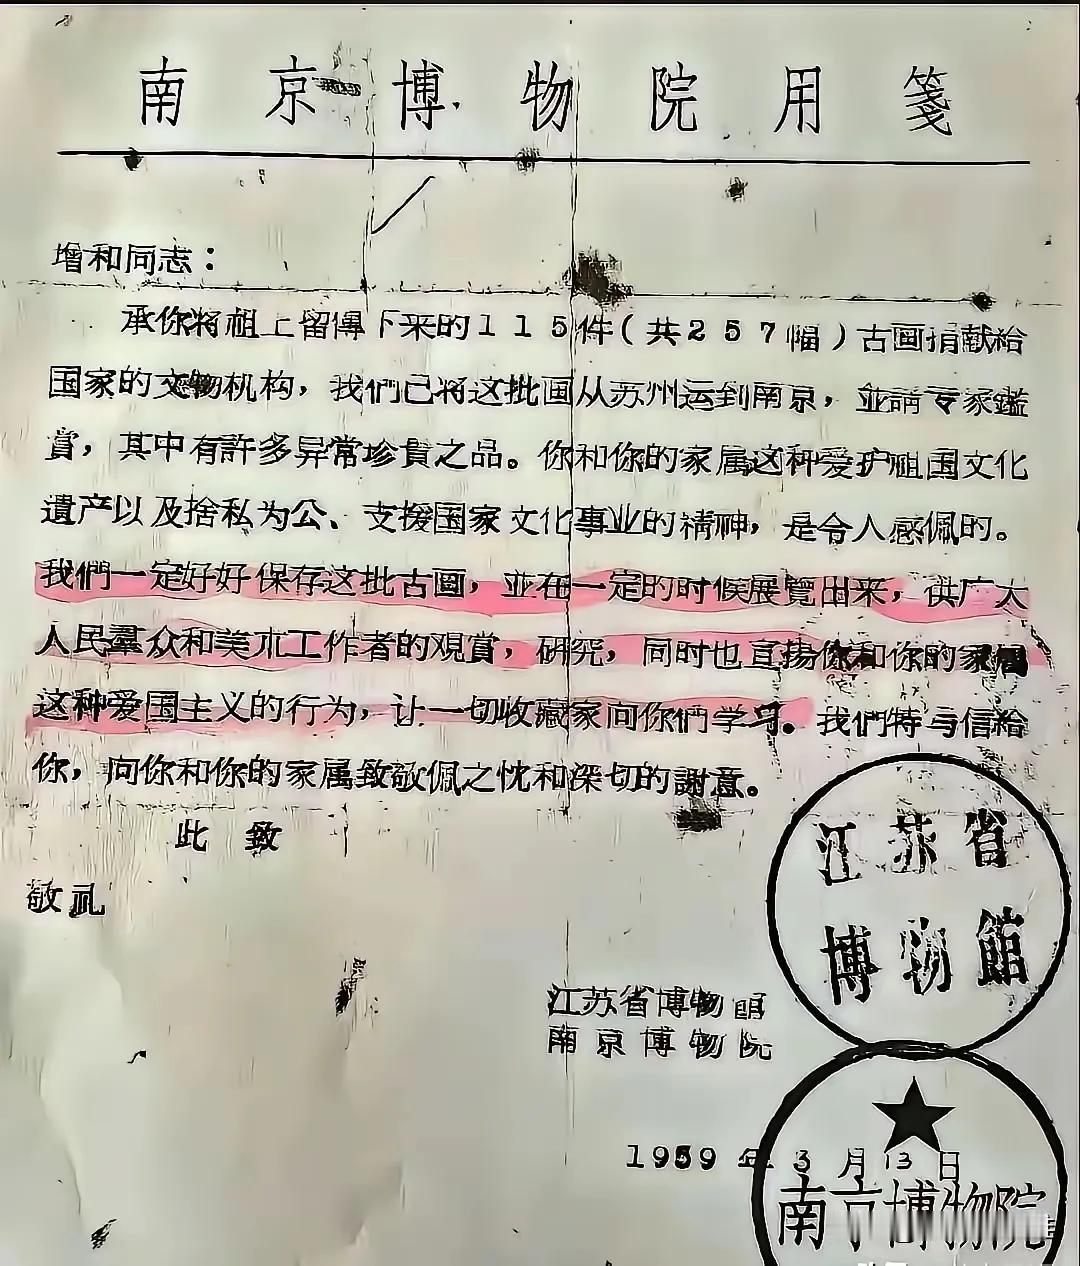 南京博物院用箋
增和同志：
承你将祖上留傳下来的115件（共257幅）古画捐献給
国家的文物机构，我們已将这批画从苏州运到南京，並請专家鑑
賞，其中有許多异常珍貴之品。你和你的家属这种爱护祖国文化
遺产以及捨私为公、支援国家文化事业的精神，是令人感佩的。
我們一定好好保存这批古画，並在一定的时候展覽出来，供广大
人民羣众和美朮工作者的观賞，研究，同时也宣揚你和你的家属
这种爱国主义的行为，让一切收藏家向你們学习。我們特写信給
你，向你和你的家属致敬佩之忱和深切的謝意。
此致
敬礼
江苏省博物館
南京博物院
1959年3月13日
江苏省
博物館
南京博物院